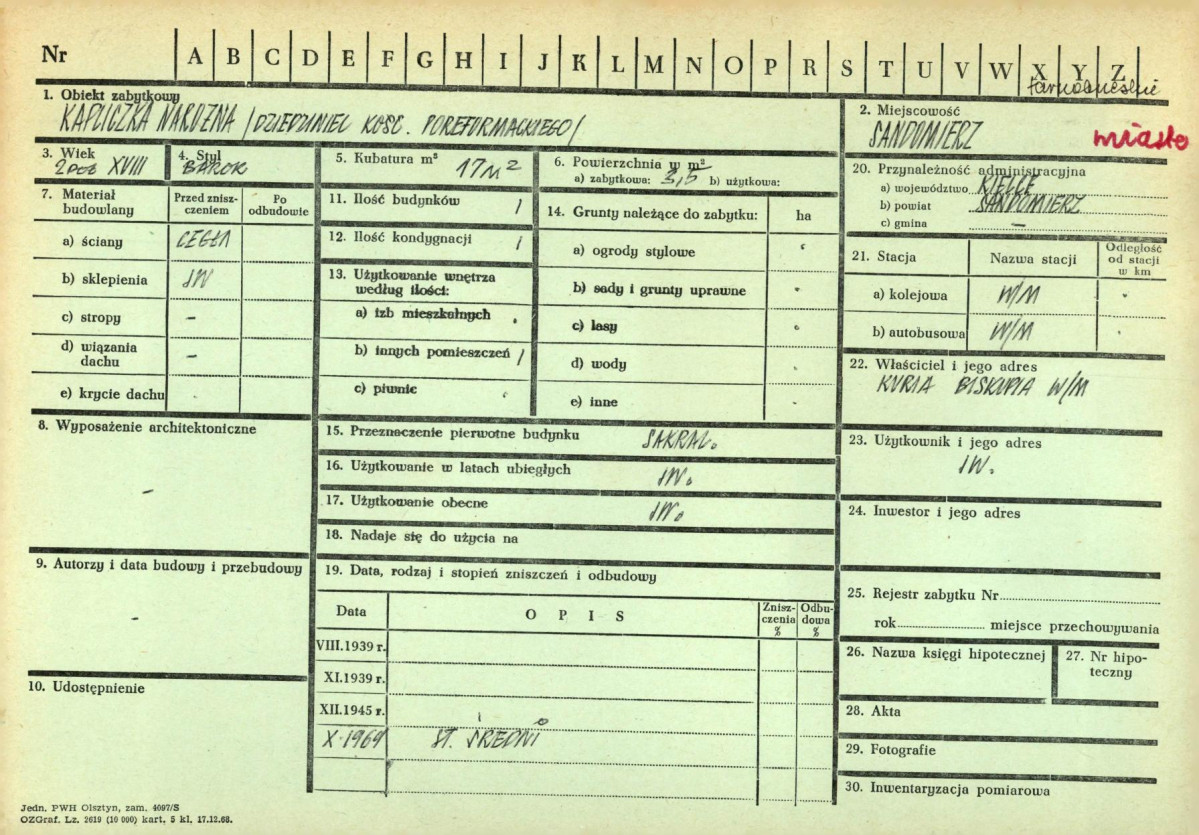 Nr A B C D E F G H I J K L M N O P R S T U V W X Y Z
tarnobrzeskie
1. Obiekt zabytkowy
KAPLICZKA NAROŻNA /DZIEDZINIEC KOŚC. POREFORMACKIEGO/
2. Miejscowość
SANDOMIERZ miasto
3. Wiek
2 poł XVIII
4. Styl
BAROK
5. Kubatura m³
17 m²
6. Powierzchnia w m²
a) zabytkowa: 3,5 b) użytkowa:
7. Materiał budowlany
Przed znisz-
czeniem
Po
odbudowie
a) ściany CEGŁA
b) sklepienia JW
c) stropy –
d) wiązania
dachu –
e) krycie dachu
8. Wyposażenie architektoniczne
–
9. Autorzy i data budowy i przebudowy
–
10. Udostępnienie
11. Ilość budynków 1
12. Ilość kondygnacji 1
13. Użytkowanie wnętrza
według ilości:
a) izb mieszkalnych .
b) innych pomieszczeń 1
c) piwnic .
14. Grunty należące do zabytku: ha
a) ogrody stylowe
b) sady i grunty uprawne
c) lasy
d) wody
e) inne
15. Przeznaczenie pierwotne budynku SAKRAL.
16. Użytkowanie w latach ubiegłych JW.
17. Użytkowanie obecne JW.
18. Nadaje się do użycia na
19. Data, rodzaj i stopień zniszczeń i odbudowy
Data OPIS Znisz-
czenia
% Odbu-
dowa
%
VIII.1939 r.
XI.1939 r.
XII.1945 r.
X.1969 ST. ŚREDNI
20. Przynależność administracyjna
a) województwo KIELCE
b) powiat SANDOMIERZ
c) gmina –
21. Stacja Nazwa stacji Odległość
od stacji
w km
a) kolejowa W/M
b) autobusowa W/M
22. Właściciel i jego adres
KURIA BISKUPIA W/M
23. Użytkownik i jego adres
JW.
24. Inwestor i jego adres
25. Rejestr zabytku Nr
rok miejsce przechowywania
26. Nazwa księgi hipotecznej
27. Nr hipo-
teczny
28. Akta
29. Fotografie
30. Inwentaryzacja pomiarowa
Jedn. PWH Olsztyn, zam. 4097/S
OZGraf. Lz. 2619 (10 000) kart. 5 kl. 17.12.68.